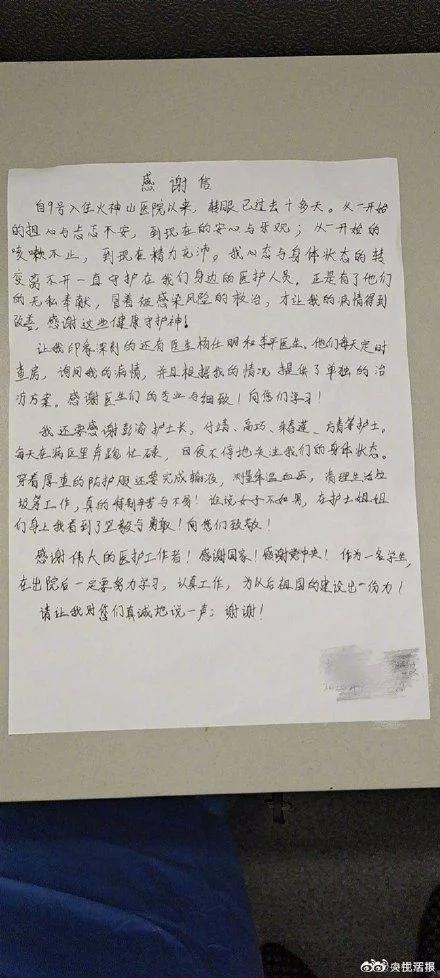 感谢信
自9号入住火神山医院以来，转眼已过去十多天。从一开始
的担心与忐忑不安，到现在的安心与乐观；从一开始的
咳嗽不止，到现在精力充沛。我心态与身体状态的转
变离不开一直守护在我们身边的医护人员。正是有了他们
的无私奉献，冒着被感染风险的救治，才让我的病情得到
改善，感谢这些健康守护神！
让我印象深刻的还有医生杨仕明和李平医生。他们每天定时
查房，询问我的病情，并且根据我的情况提供了单独的治
疗方案。感谢医生们的专业与细致！向您们学习！
我还要感谢彭渝护士长，付靖、高巧、等护士。
每天在病区里奔跑忙碌，日夜不停地关注我们的身体状态。
穿着厚重的防护服还要完成输液，测量体温血压，清理生活垃
圾等工作，真的特别辛苦与不易！谁说女子不如男，在护士姐姐
们身上我看到了坚毅与勇敢！向您们致敬！
感谢伟大的医护工作者！感谢国家！感谢党中央！作为一名学生，
在出院后一定要努力学习，认真工作，为以后祖国的建设出一份力！
请让我对您们真诚地说一声：谢谢！
@央视新闻